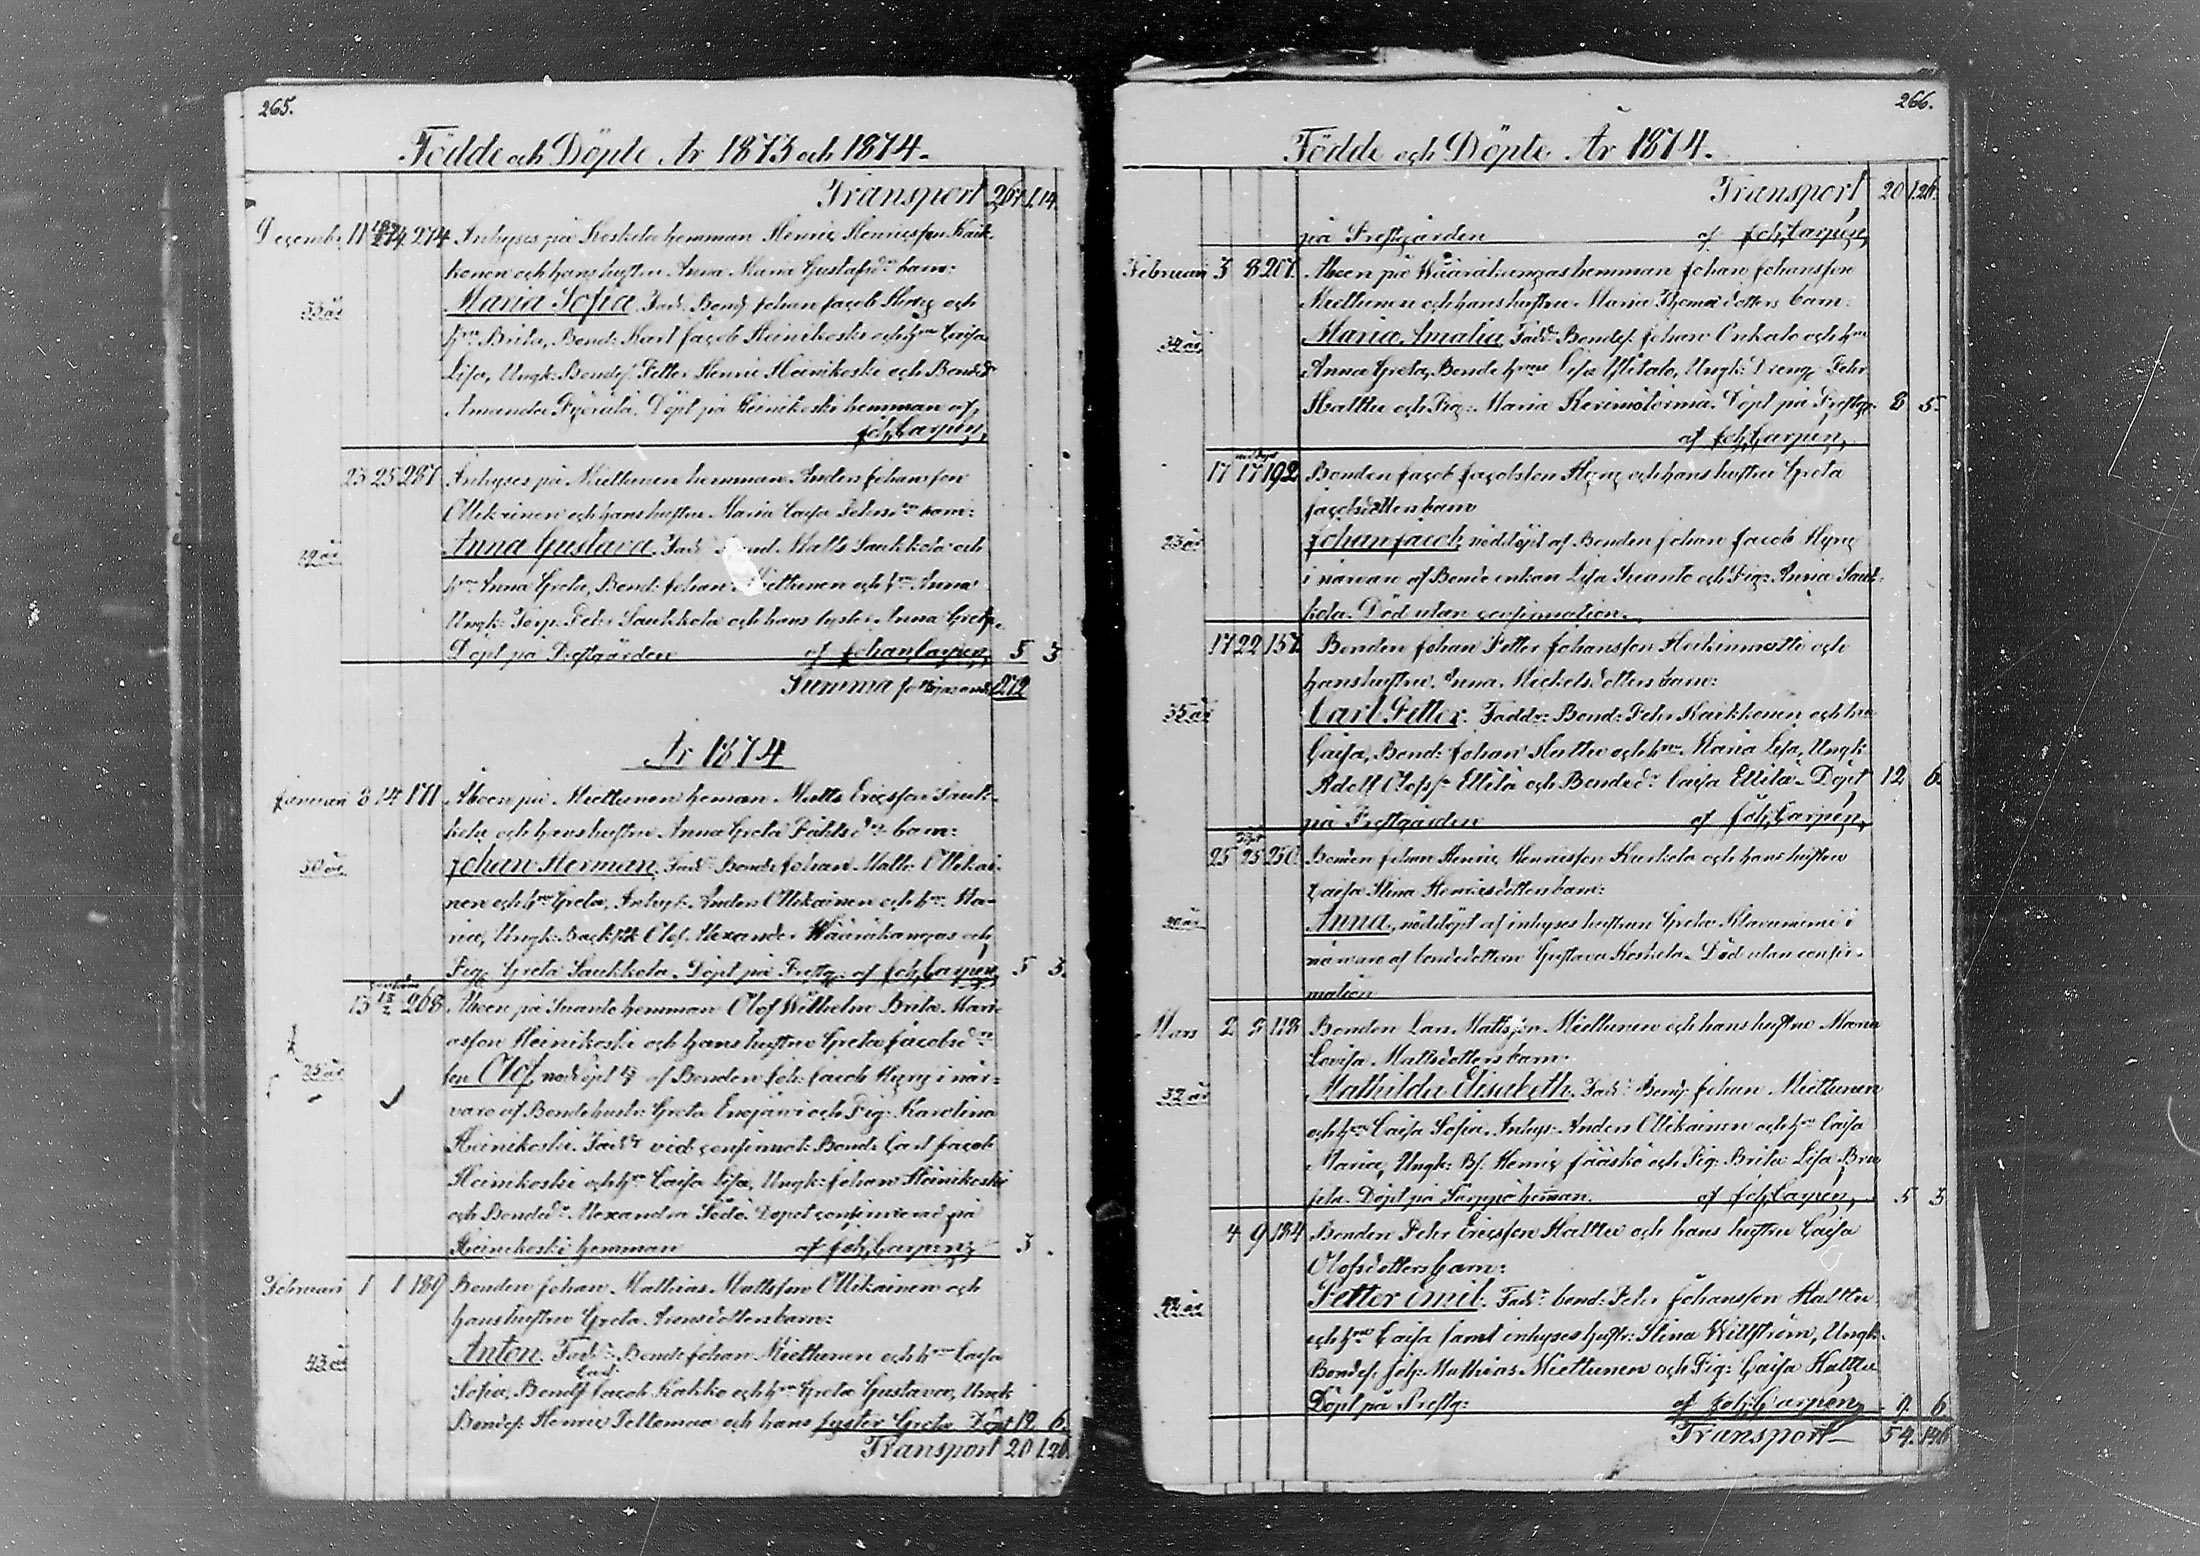 265.
Födde och Döpte År 1873 och 1874.
Transport 267 1.14.
Decemb. 11 274 Inhyses på Koskela hemman Henric Henricsson Kaik-
konen och hans hustru Anna Maria Gustafsdrs barn:
33 år Maria Sofia. Fadd. Bond. Johan Jacob Hyry och
hru Brita, Bond. Karl Jacob Heinikoski och hru Caisa
Lisa, Ungk: Bondes. Petter Henric Heinikoski och Bonded.
Amanda Döpt på Heinikoski hemman af
Joh. Carpén,
23 25 287 Inhyses på Miettunen hemman Anders Johansson
Ollikainen och hans hustru Maria Caisa Pehrsdrs barn:
29 år Anna Gustava. Fadd. Bond. Matts Saukkola och
hru Anna Greta, Bond: Johan Miettunen och hru Anna
Ungk: Torp. Pehr Saukkola och hans syster Anna Greta.
Döpt på Prestgården af Johan Carpén, 5 3
Summa 272
År 1874
Januari 8 14 171 Åboen på Miettunen heman Matts Ericsson Sauk-
kola och hans hustru Anna Greta drs barn:
30 år Johan Herman. Fadd. Bond. Johan Matts. Ollikai-
nen och hru Greta, Inhys: Anders Ollikainen och hru Ma-
ria, Ungk: Olof Alexander Wääräkangas och
Pig. Greta Saukkola. Döpt på Prestg: af Joh. Carpén, 5 3.
13 268 Åboen på Suanto hemman Olof Wilhelm Brita Mari-
asson Heinikoski och hans hustru Greta Jacobsdrs
25 år son Olof, nöddöpt af Bonden Joh. Jacob Hyry i när-
varo af Bondehustr: Greta Enojärvi och Pig: Karolina
Heinikoski. Fadd. vid confirmat: Bond: Carl Jacob
Heinikoski och hru Caisa Lisa, Ungk: Johan Heinikoski
och Bonded. Alexandra Dopet confirmerad på
Heinikoski hemman af Joh. Carpén, 3.
Februari 1 1 189 Bonden Johan Mathias Mattsson Ollikainen och
hans hustru Greta Aronsdotters barn:
43 år Anton. Fadd. Bond. Johan Miettunen och hru Caisa
Sofia, Bonds. Jacob Kakko och hru Greta Gustava, Ungk:
Bondes. Henric Peltomaa och hans syster Greta. Döpt 12. 6.
Transport 20 1.26.
266.
Födde och Döpte År 1874.
Transport 20 1.26.
på Prestgården af Joh. Carpén,
Februari 3 8 207. Åboen på Wääräkangas hemman Johan Johansson
Miettunen och hans hustru Maria Thomasdotters barn:
34 år Maria Amalia. Fadd. Bondes. Johan Onkalo och hru
Anna Greta, Bondehru Lisa Ylitalo, Ungk: Dreng Pehr
Halttu och Pig: Maria Döpt på Prestg: 8 5.
af Joh. Carpén,
17 17 192 Bonden Jacob Jacobsson Hyry och hans hustru Greta
Jacobsdotters barn
23 år Johan Jacob, nöddöpt af Bonden Johan Jacob Hyry
i närvaro af Bonde enkan Lisa Suanto och Pig: Anna Sauk-
kola. Död utan confirmation.
17 22 157. Bonden Johan Petter Johansson Heikinmatti och
hans hustru Anna Mickelsdotters barn:
35 år Carl Petter. Faddr: Bond: Pehr Kaikkonen och hru
Caisa, Bond: Johan Halttu och hru Maria Lisa, Ungk:
Adolf Olofss. Ellilä och Bonded. Caisa Ellilä. Döpt 12 6.
på Prestgården af Joh. Carpén,
25 25 250. Bonden Johan Henric Henricsson Kurkela och hans hustru
Caisa Stina Henricsdotters barn:
Anna, nöddöpt af inhyses hustrun Greta i
närvaro af bondedottern Gustava Koskela. Död utan confir-
mation
Mars 2 118 Bonden Lars Mattsson Miettunen och hans hustru Maria
Lovisa Mattsdotters barn:
32 år Mathilda Elisabeth. Fadd. Bond. Johan Miettunen
och hru Caisa Sofia, Inhys: Anders Ollikainen och hru Caisa
Maria, Ungk: Bs. Henric Jääskö och Pig: Brita Lisa
Döpt på heman. af Joh. Carpén, 5 3.
4 9 184 Bonden Pehr Ericsson Halttu och hans hustru Caisa
Olofsdotters barn:
Petter Emil. Fadd. bond: Pehr Johansson Halttu
och hru Caisa samt inhyseshustr: Stina Willström, Ungk:
Bondes. Joh: Mathias Miettunen och Pig: Caisa Halttu
Döpt på Prestg: af Joh. Carpén, 9. 6.
Transport 54.